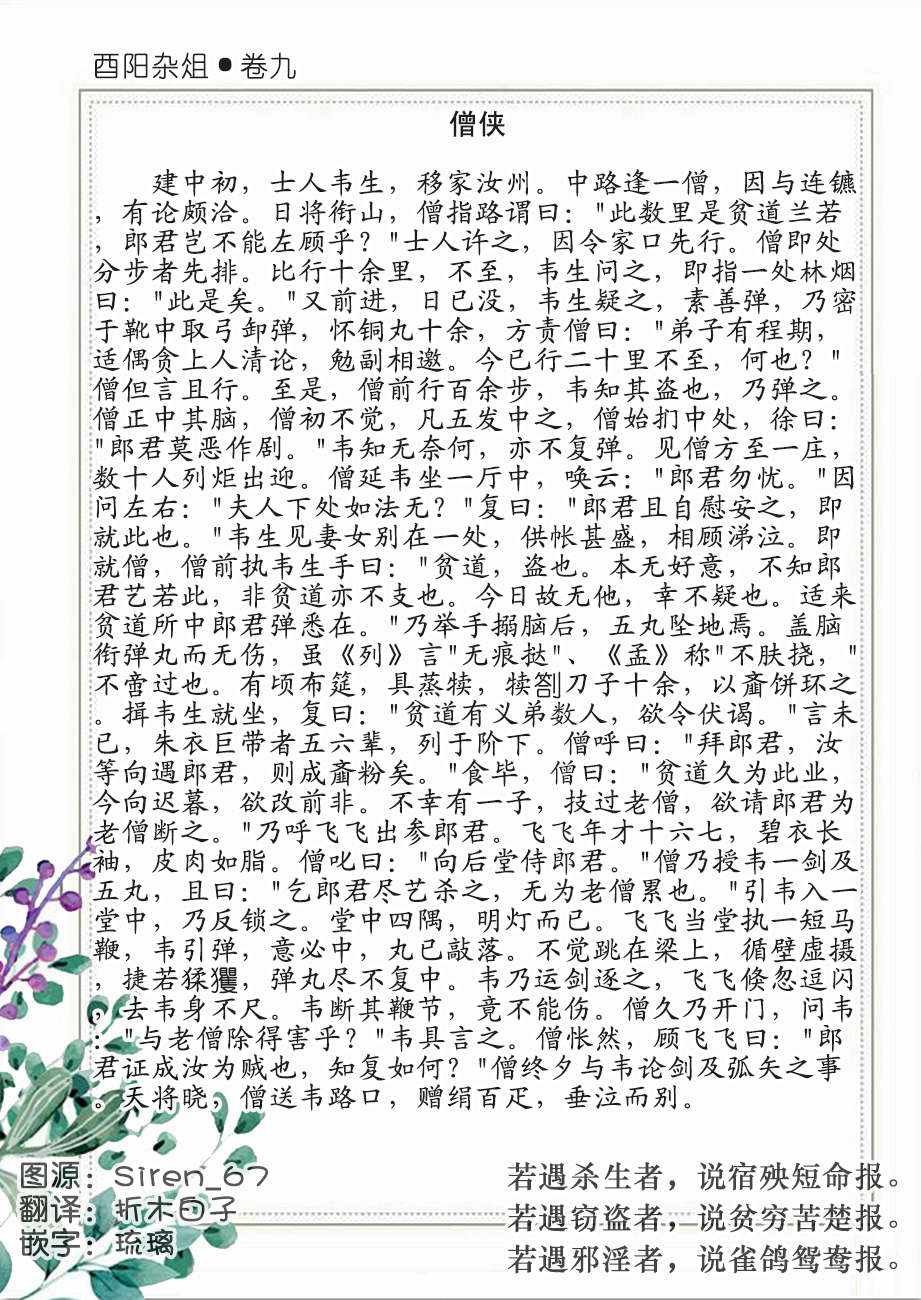 酉阳杂俎●卷九
僧侠
建中初，士人韦生，移家汝州。中路逢一僧，因与连镳
，有论颇洽。日将衔山，僧指路谓曰："此数里是贫道兰若
，郎君岂不能左顾乎？"士人许之，因令家口先行。僧即处
分步者先排。比行十余里，不至，韦生问之，即指一处林烟
曰："此是矣。"又前进，日已没，韦生疑之，素善弹，乃密
于靴中取弓卸弹，怀铜丸十余，方责僧曰："弟子有程期，
适偶贪上人清论，勉副相邀。今已行二十里不至，何也？"
僧但言且行。至是，僧前行百余步，韦知其盗也，乃弹之。
僧正中其脑，僧初不觉，凡五发中之，僧始扪中处，徐曰：
"郎君莫恶作剧。"韦知无奈何，亦不复弹。见僧方至一庄，
数十人列炬出迎。僧延韦坐一厅中，唤云："郎君勿忧。"因
问左右："夫人下处如法无？"复曰："郎君且自慰安之，即
就此也。"韦生见妻女别在一处，供帐甚盛，相顾涕泣。即
就僧，僧前执韦生手曰："贫道，盗也。本无好意，不知郎
君艺若此，非贫道亦不支也。今日故无他，幸不疑也。适来
贫道所中郎君弹悉在。"乃举手搦脑后，五丸坠地焉。盖脑
衔弹丸而无伤，虽《列》言"无痕挞"、《孟》称"不肤挠，"
不啻过也。有顷布筵，具蒸犊，犊劄刀子十余，以齑饼环之
。揖韦生就坐，复曰："贫道有义弟数人，欲令伏谒。"言未
已，朱衣巨带者五六辈，列于阶下。僧呼曰："拜郎君，汝
等向遇郎君，则成齑粉矣。"食毕，僧曰："贫道久为此业，
今向迟暮，欲改前非。不幸有一子，技过老僧，欲请郎君为
老僧断之。"乃呼飞飞出参郎君。飞飞年才十六七，碧衣长
袖，皮肉如脂。僧叱曰："向后堂侍郎君。"僧乃授韦一剑及
五丸，且曰："乞郎君尽艺杀之，无为老僧累也。"引韦入一
堂中，乃反锁之。堂中四隅，明灯而已。飞飞当堂执一短马
鞭，韦引弹，意必中，丸已敲落。不觉跳在梁上，循壁虚摄
，捷若猱玃，弹丸尽不复中。韦乃运剑逐之，飞飞倏忽逗闪
，去韦身不尺。韦断其鞭节，竟不能伤。僧久乃开门，问韦
："与老僧除得害乎？"韦具言之。僧怅然，顾飞飞曰："郎
君证成汝为贼也，知复如何？"僧终夕与韦论剑及弧矢之事
。天将晓，僧送韦路口，赠绢百疋，垂泣而别。
图源：Siren_67
翻译：折木白子
嵌字：琉璃
若遇杀生者，说宿殃短命报。
若遇窃盗者，说贫穷苦楚报。
若遇邪淫者，说雀鸽鸳鸯报。